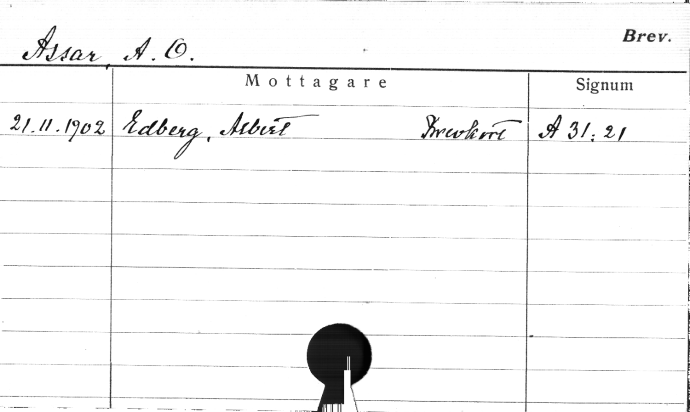 Brev.
Assar, A. O.
Mottagare Signum
21.11.1902 Edberg, Albert Brevkort A 31:21